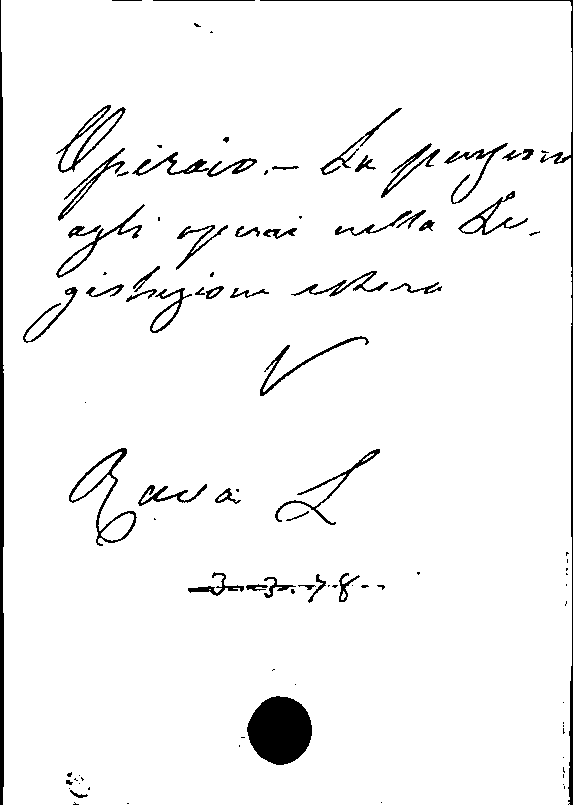 Operaio. – La pensione
agli operai nella Le-
gislazione estera
V
Rava L
3-3-78